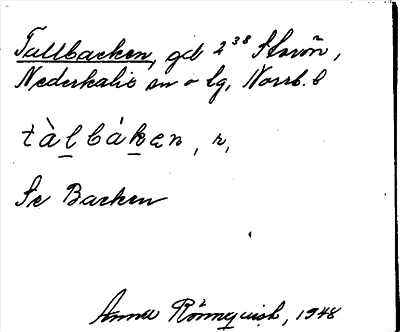 Tallbacken, gd 2³⁸ Storön,
Nederkalix sn o lg, Norrb. l
tàlbáken, r,
Se Backen
Anna Rönnquist, 1948